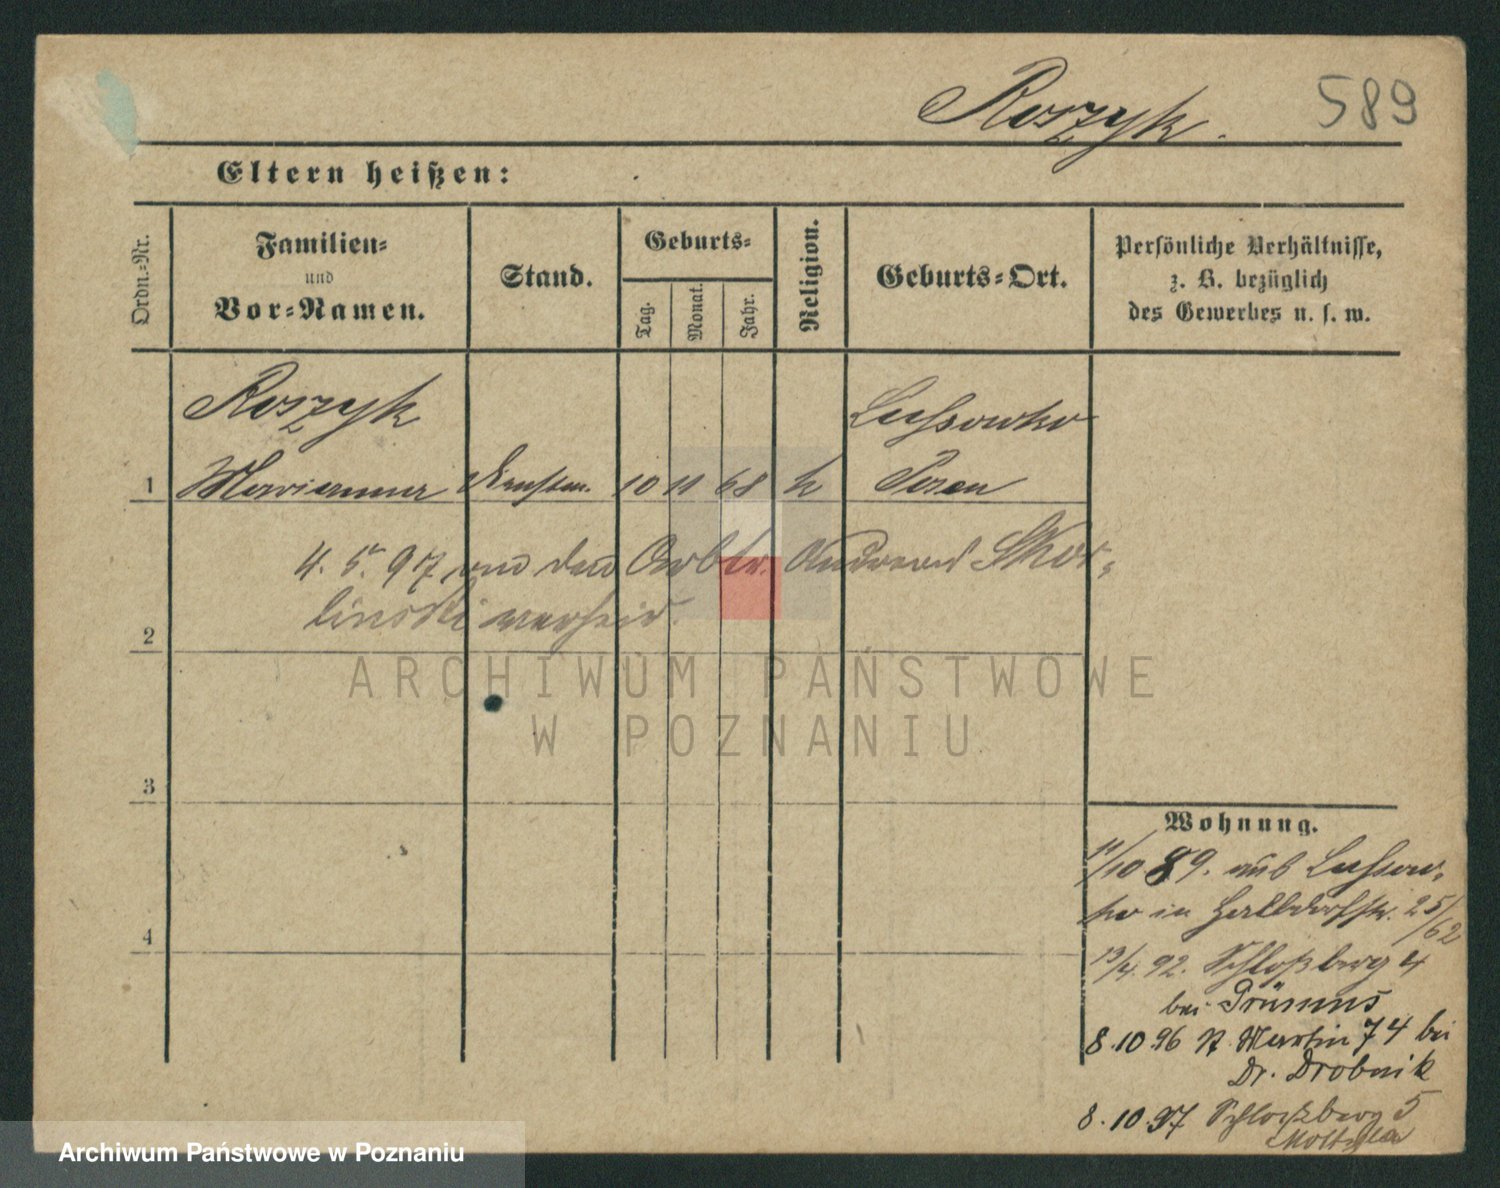 Roszyk.
589
Eltern heißen:
Ordn.-Nr.
Familien-
und
Vor-Namen.
Stand.
Geburts-
Tag.
Monat.
Jahr.
Religion.
Geburts-Ort.
Persönliche Verhältnisse,
z. B. bezüglich
des Gewerbes u. s. w.
Roszyk
Lussowko
1 Marianna 10 11 68 k Posen
4. 5. 97 den Arbtr. Andreas Skor-
linski verheir.
2
ARCHIWUM PAŃSTWOWE
W POZNANIU
3
Wohnung.
11/10 89. aus Lussow-
ko in Halbdorfstr. 25/62
4
13/4. 92. Schloßberg 4
bei
8.10.96 St. Martin 74 bei
Dr. Drobnik
8.10.97 Schloßberg 5
Archiwum Państwowe w Poznaniu